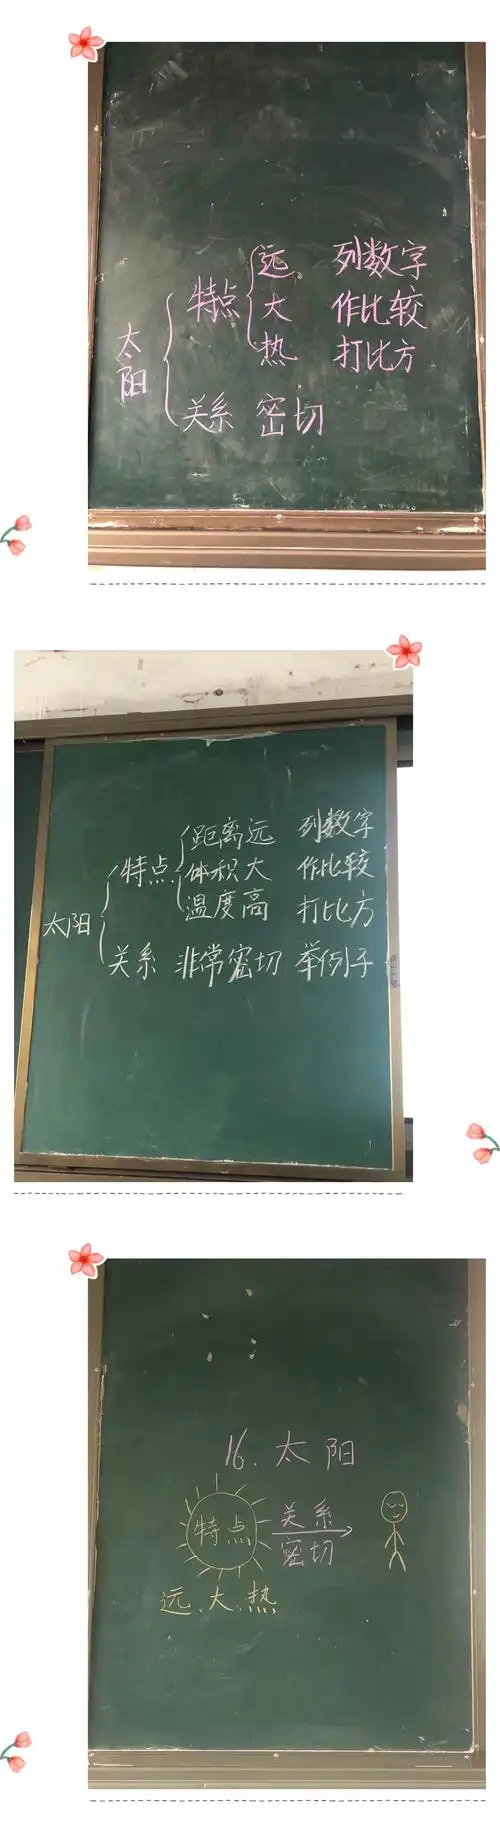 远 列数字
特点 大 作比较
热 打比方
太阳
关系 密切
距离远 列数字
特点 体积大 作比较
温度高 打比方
太阳
关系 非常密切 举例子
16. 太阳
特点 关系
密切
远、大、热